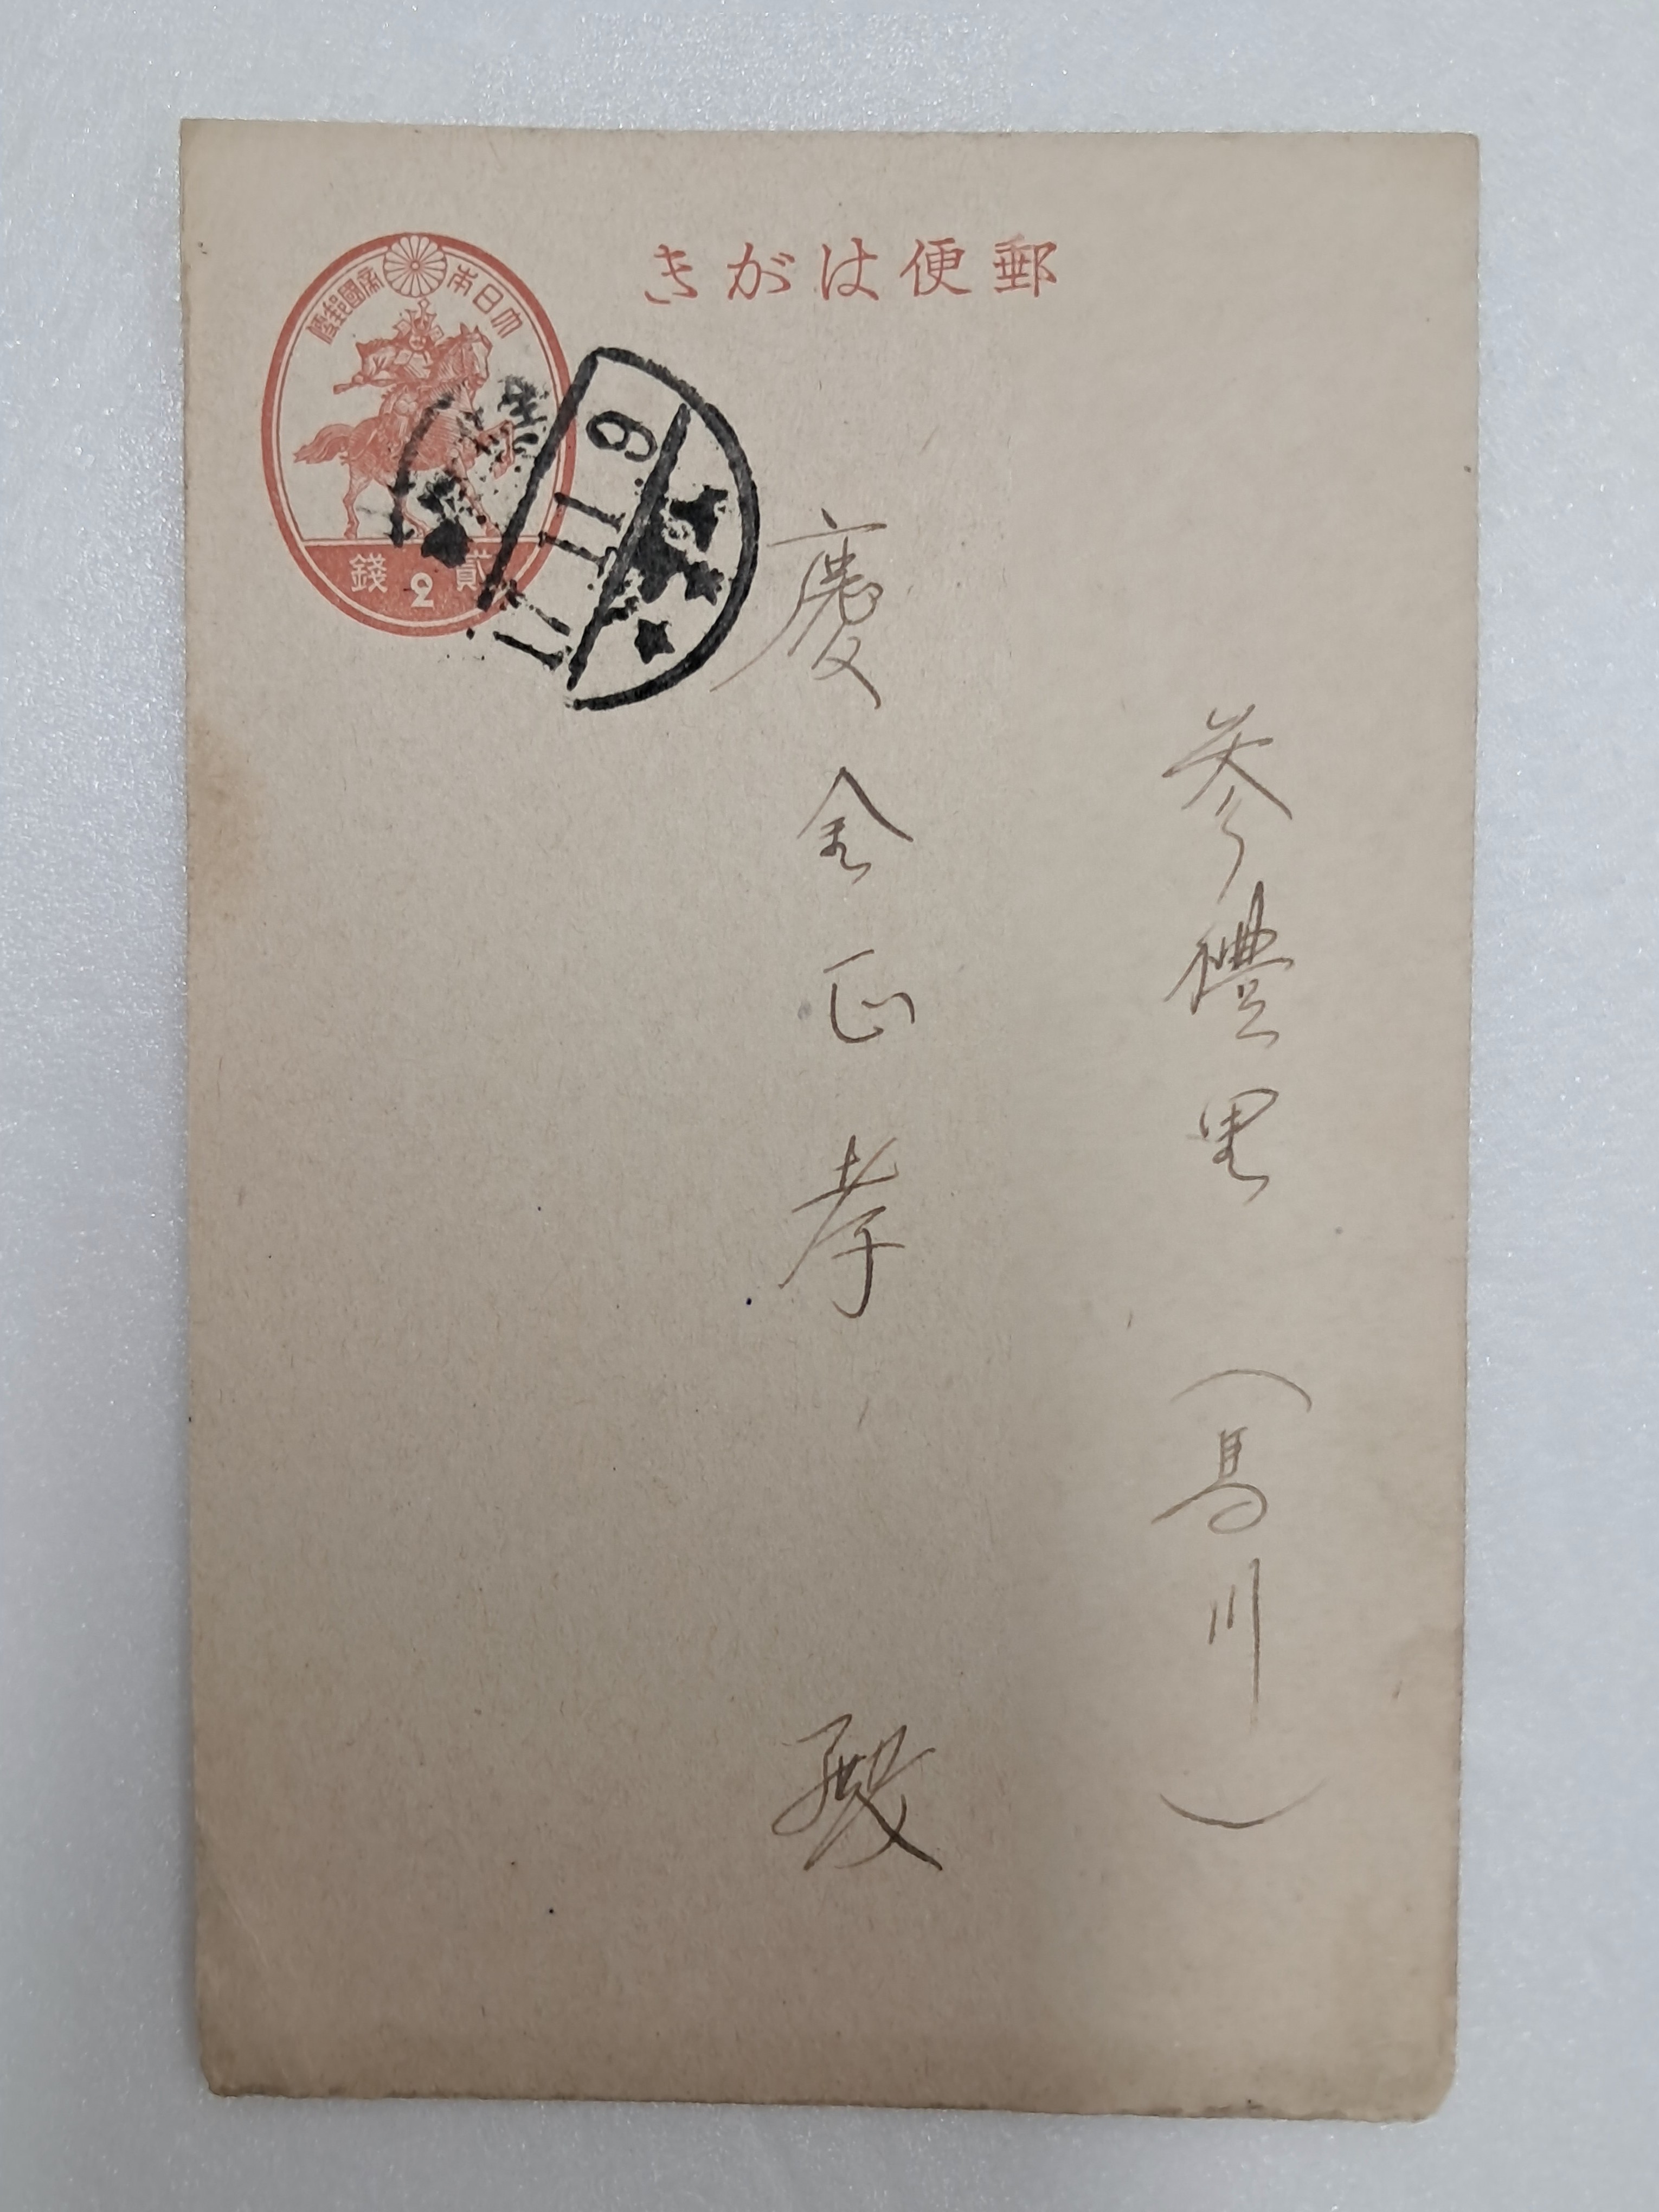 郵便はがき
大日本帝國郵便
貳錢
2
参禮里 (馬川)
慶金正孝 殿